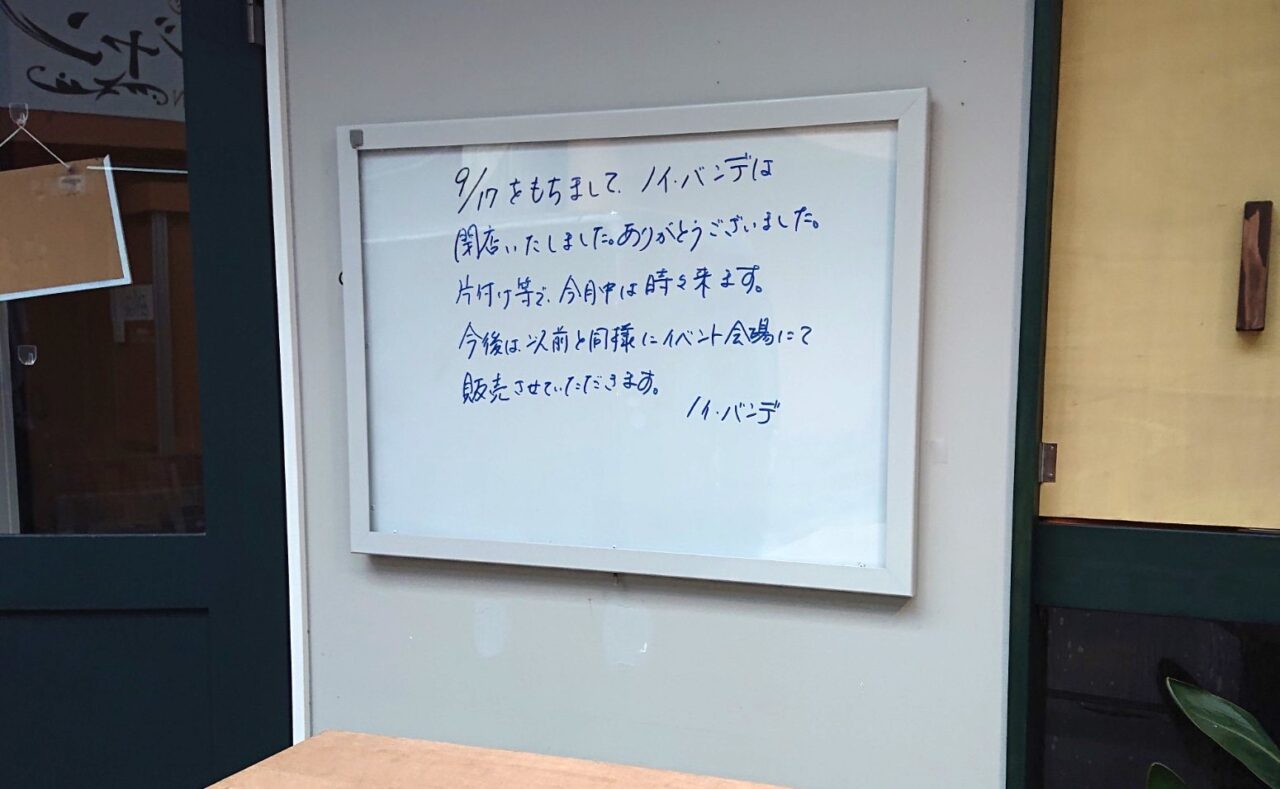 9/17をもちまして、ノイ・バンデは
閉店いたしました。ありがとうございました。
片付け等で、今月中は時々来ます。
今後は以前と同様にイベント会場にて
販売させていただきます。
ノイ・バンデ